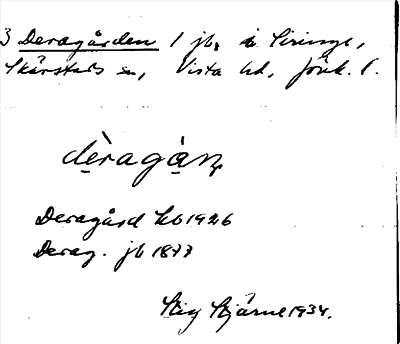 3 Deragården 1 jb. i Siringe,
Skärstads sn, Vista hd, Jönk. l.
dèragàṇ
Deragård kb 1926
Derag. jb 1877
Stig Stjärne 1934.